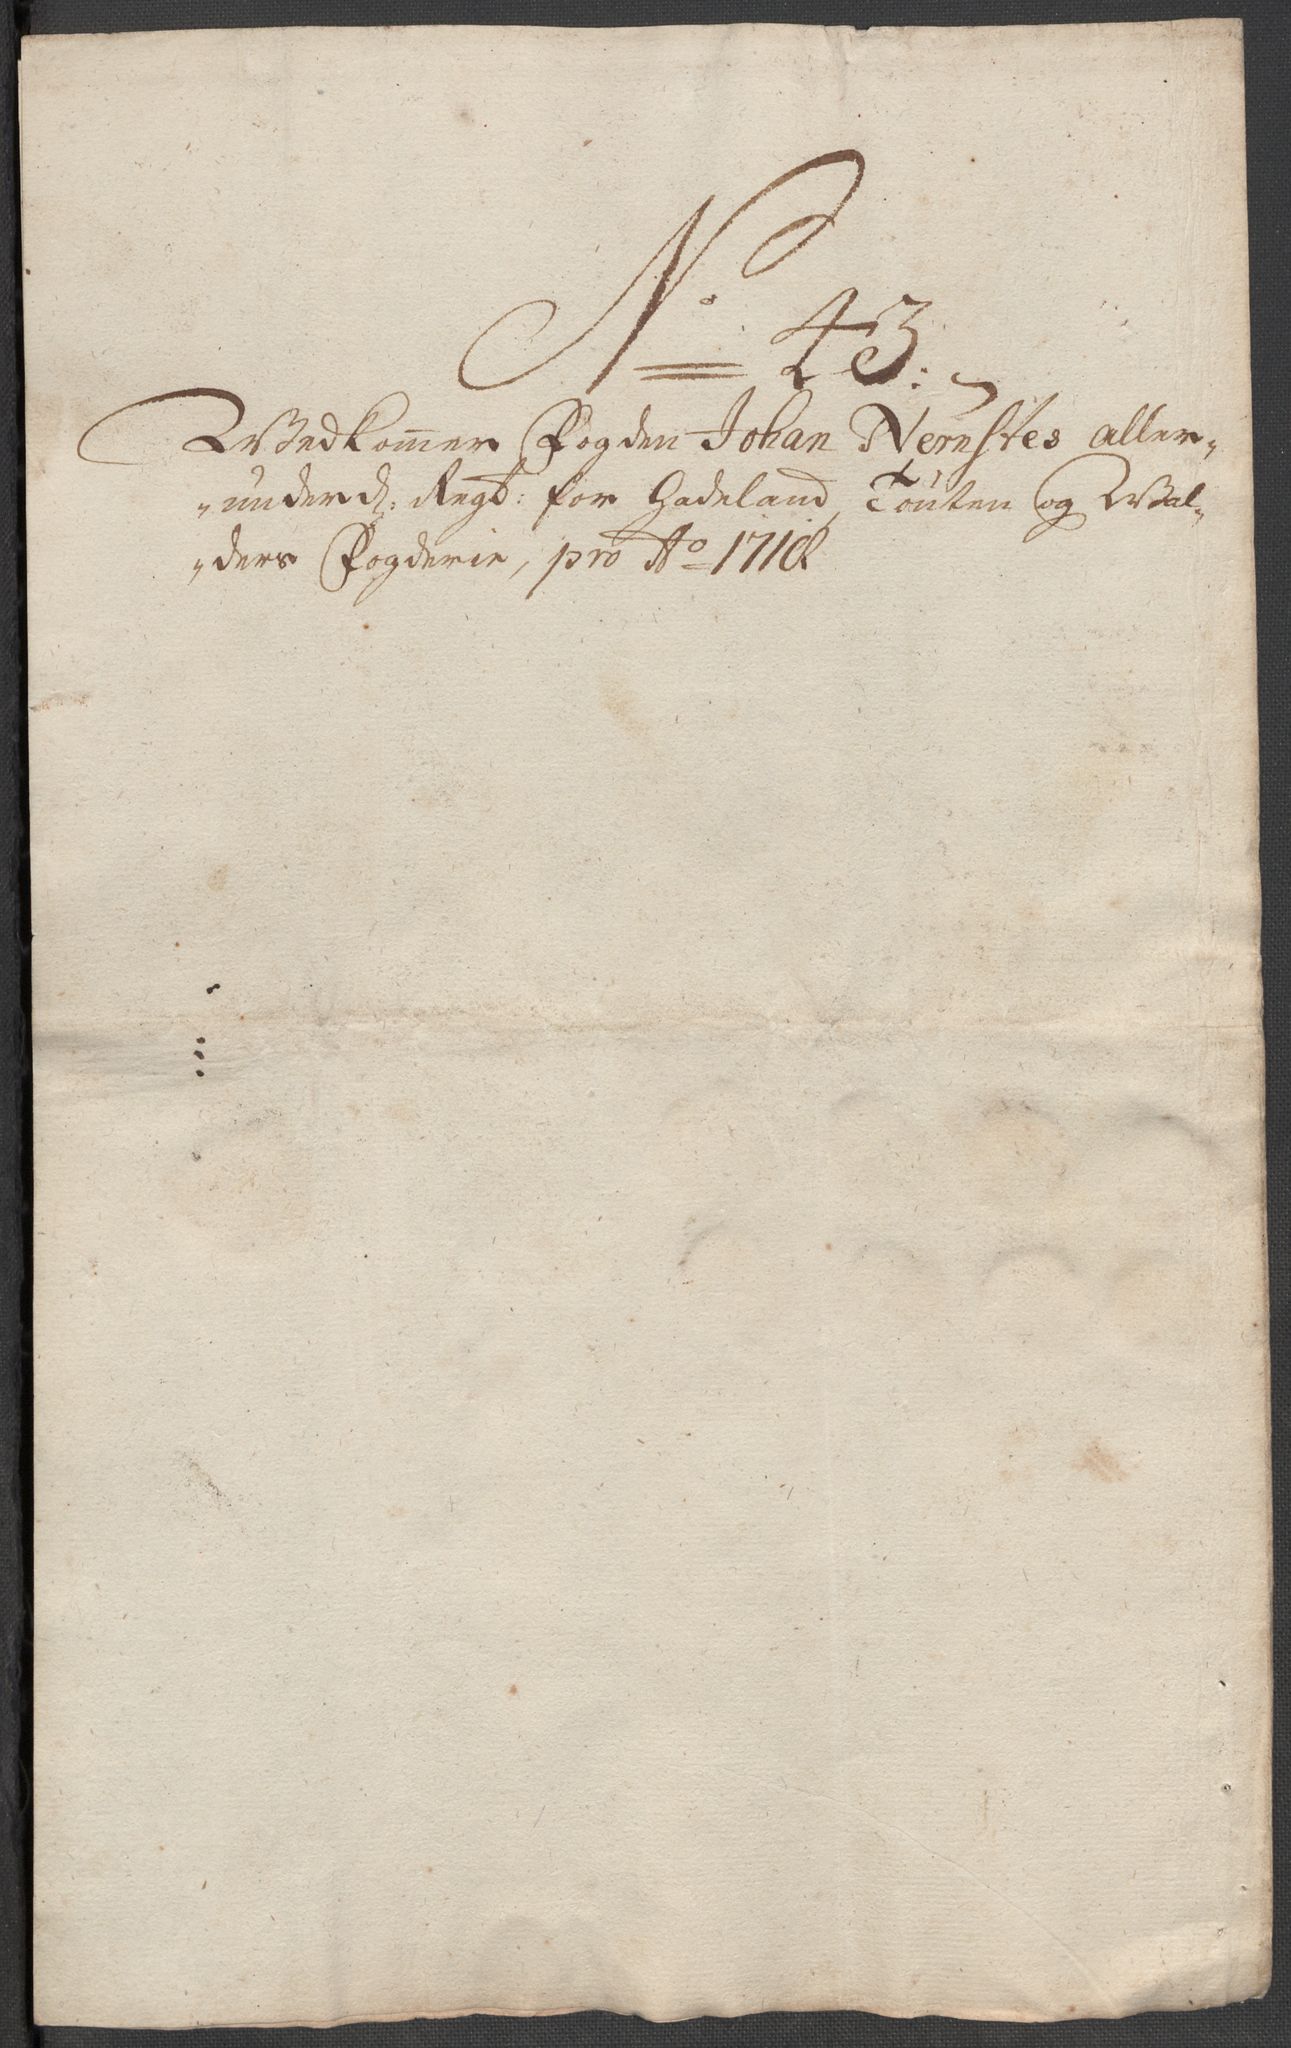 No 43.
Wedkommer Fogden Johan Nernstes aller-
underd: Regsk: for Hadeland, Touten og Wal-
ders Fogderie, pro Ao 1718